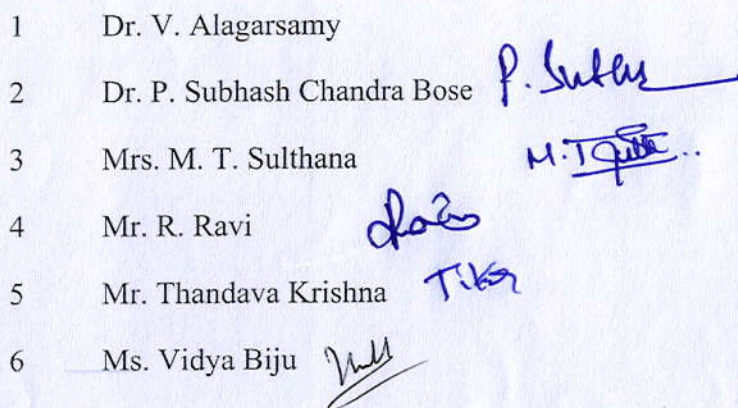 1 Dr. V. Alagarsamy
2 Dr. P. Subhash Chandra Bose P. Subhs
3 Mrs. M. T. Sulthana M. T
4 Mr. R. Ravi
5 Mr. Thandava Krishna
6 Ms. Vidya Biju